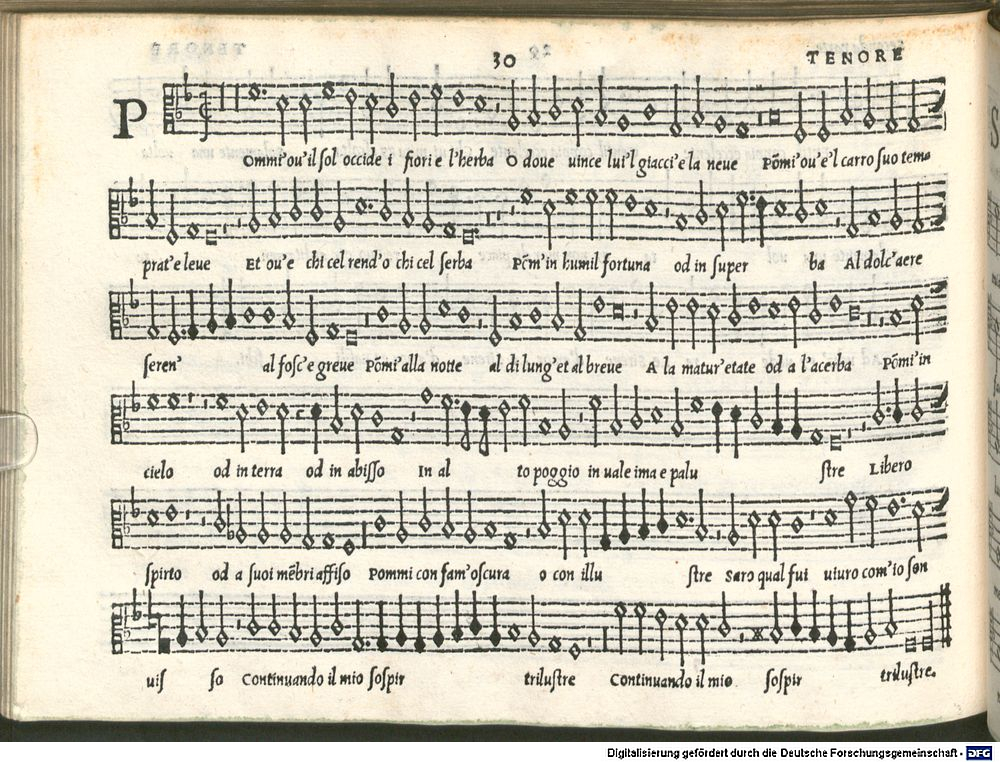 30 TENORE
P
Ommi'ou'il sol occide i fiori e l'herba O doue uince lui'l giacci'e la neue Põmi'ou'e'l carro suo tem
prat'e leue Et ou'e chi cel rend'o chi cel serba Põm'in humil fortuna od in super ba Al dolc'aere
seren' al fosc'e greue Põmi'alla notte al di lung'et al breue A la matur'etate od a l'acerba Põmi'in
cielo od in terra od in abisso In al to poggio in uale ima e palu stre Libero
spirto od a suoi mẽbri affiso Pommi con fam'oscura o con illu stre Saro qual fui uiuro com'io son
uis so Continuando il mio sospir trilustre Continuando il mio sospir trilustre.
Digitalisierung gefördert durch die Deutsche Forschungsgemeinschaft - DFG